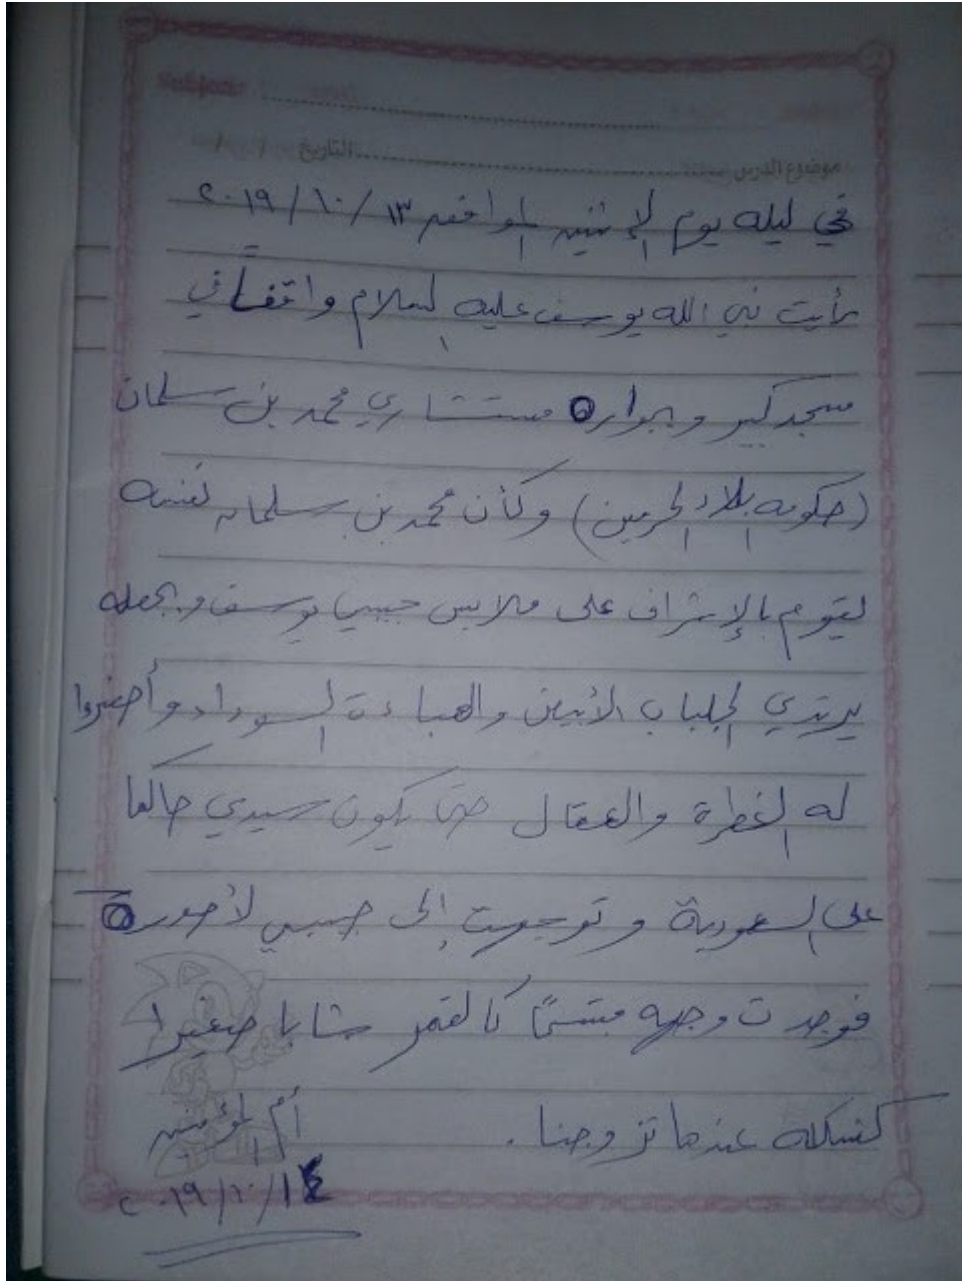 Subject:
موضوع الدرس التاريخ / /
في ليله يوم الإثنين الموافق ١٣/١٠/٢٠١٩
رأيت نبي الله يوسف عليه السلام واقفاً في
مسجد كبير وبجواره مستشاري محمد بن سلمان
(حكومه بلاد الحرمين) وكأن محمد بن سلمان نفسه
ليقوم بالإشراف على ملابس حبيبي يوسف وبجعله
يرتدي الجلباب الأبيض والعباءة السوداء وأحضروا
له الغطرة والعقال حتى يكون سيدي حاكما
على السعودية وتوجهت إلى حبيبي لأصوره
فوجدت وجهه مبتسمًا كالقمر شابا صغيرا
كشكله عندما تزوجنا .
أم المؤمنين
٢٠١٩/١٠/١٤